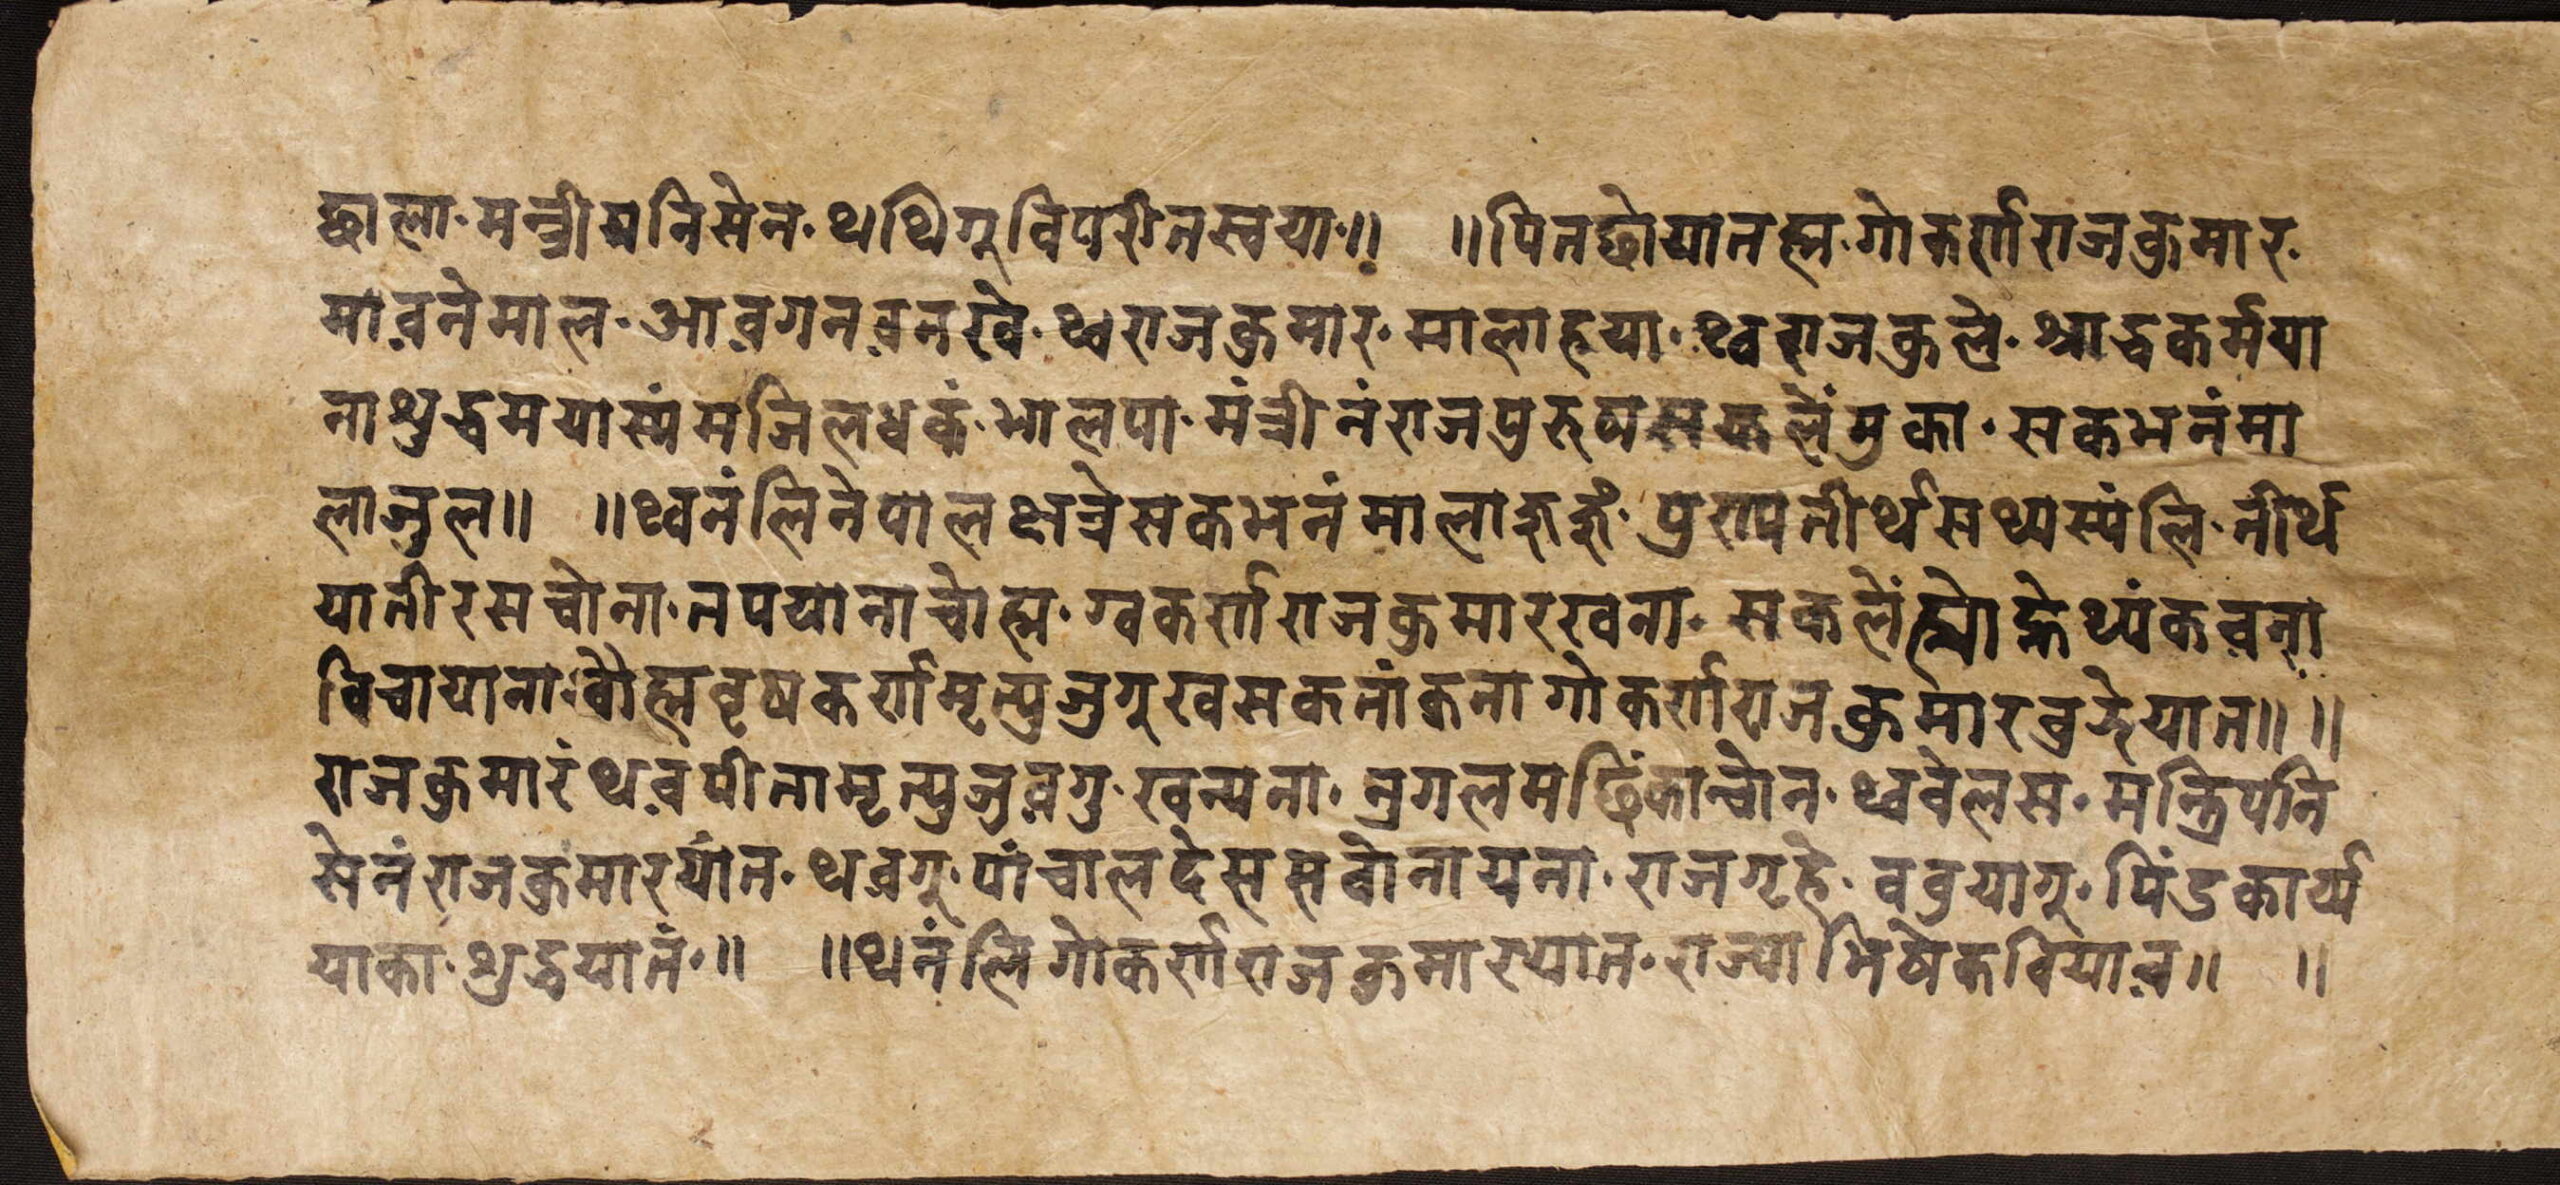 छाला· मन्त्रीपनिसेन· थथिगू विपरीतस्वया·॥ ॥पितछोयातह्म· गोकर्ण राजकुमार·
मावनेमाल· आवगनवनखे· थ्वराजकुमार· मालाहया· थ्वराजकुले· श्राद्धकर्मया
नाशुद्धमयास्यंमजिलधकं· भालपा· मंत्रीनंराजपुरुषसकलेंमुका· सकभनंमा
लाजुल॥ ॥थ्वनंलिनेपालक्षत्रेसकभनंमालाजुजुं· पुरापतीर्थसथ्यस्यंलि· तीर्थ
यातीरसचोना· तपयानाचोह्म· ग्वकर्णराजकुमारखना· सकलें
विचायाना· वोह्मवृषकर्णमृत्युजुगुखसकतांकनागोकर्णराजकुमारवुझेयात॥ ॥
राजकुमारंथवपीतामृत्युजुवगु· खन्यना· नुगलमछिंकाचोन· थ्ववेलस· मन्त्रिपनि
सेनंराजकुमारयांत· थवगू· पांचालदेससवोनायना· राजगृहे· ववुयागू· पिंडकार्य्य
याका· शुद्धयातं·॥ ॥थनंलि गोकर्णराजकुमारयात· राज्याभिषेकवियाव॥ ॥